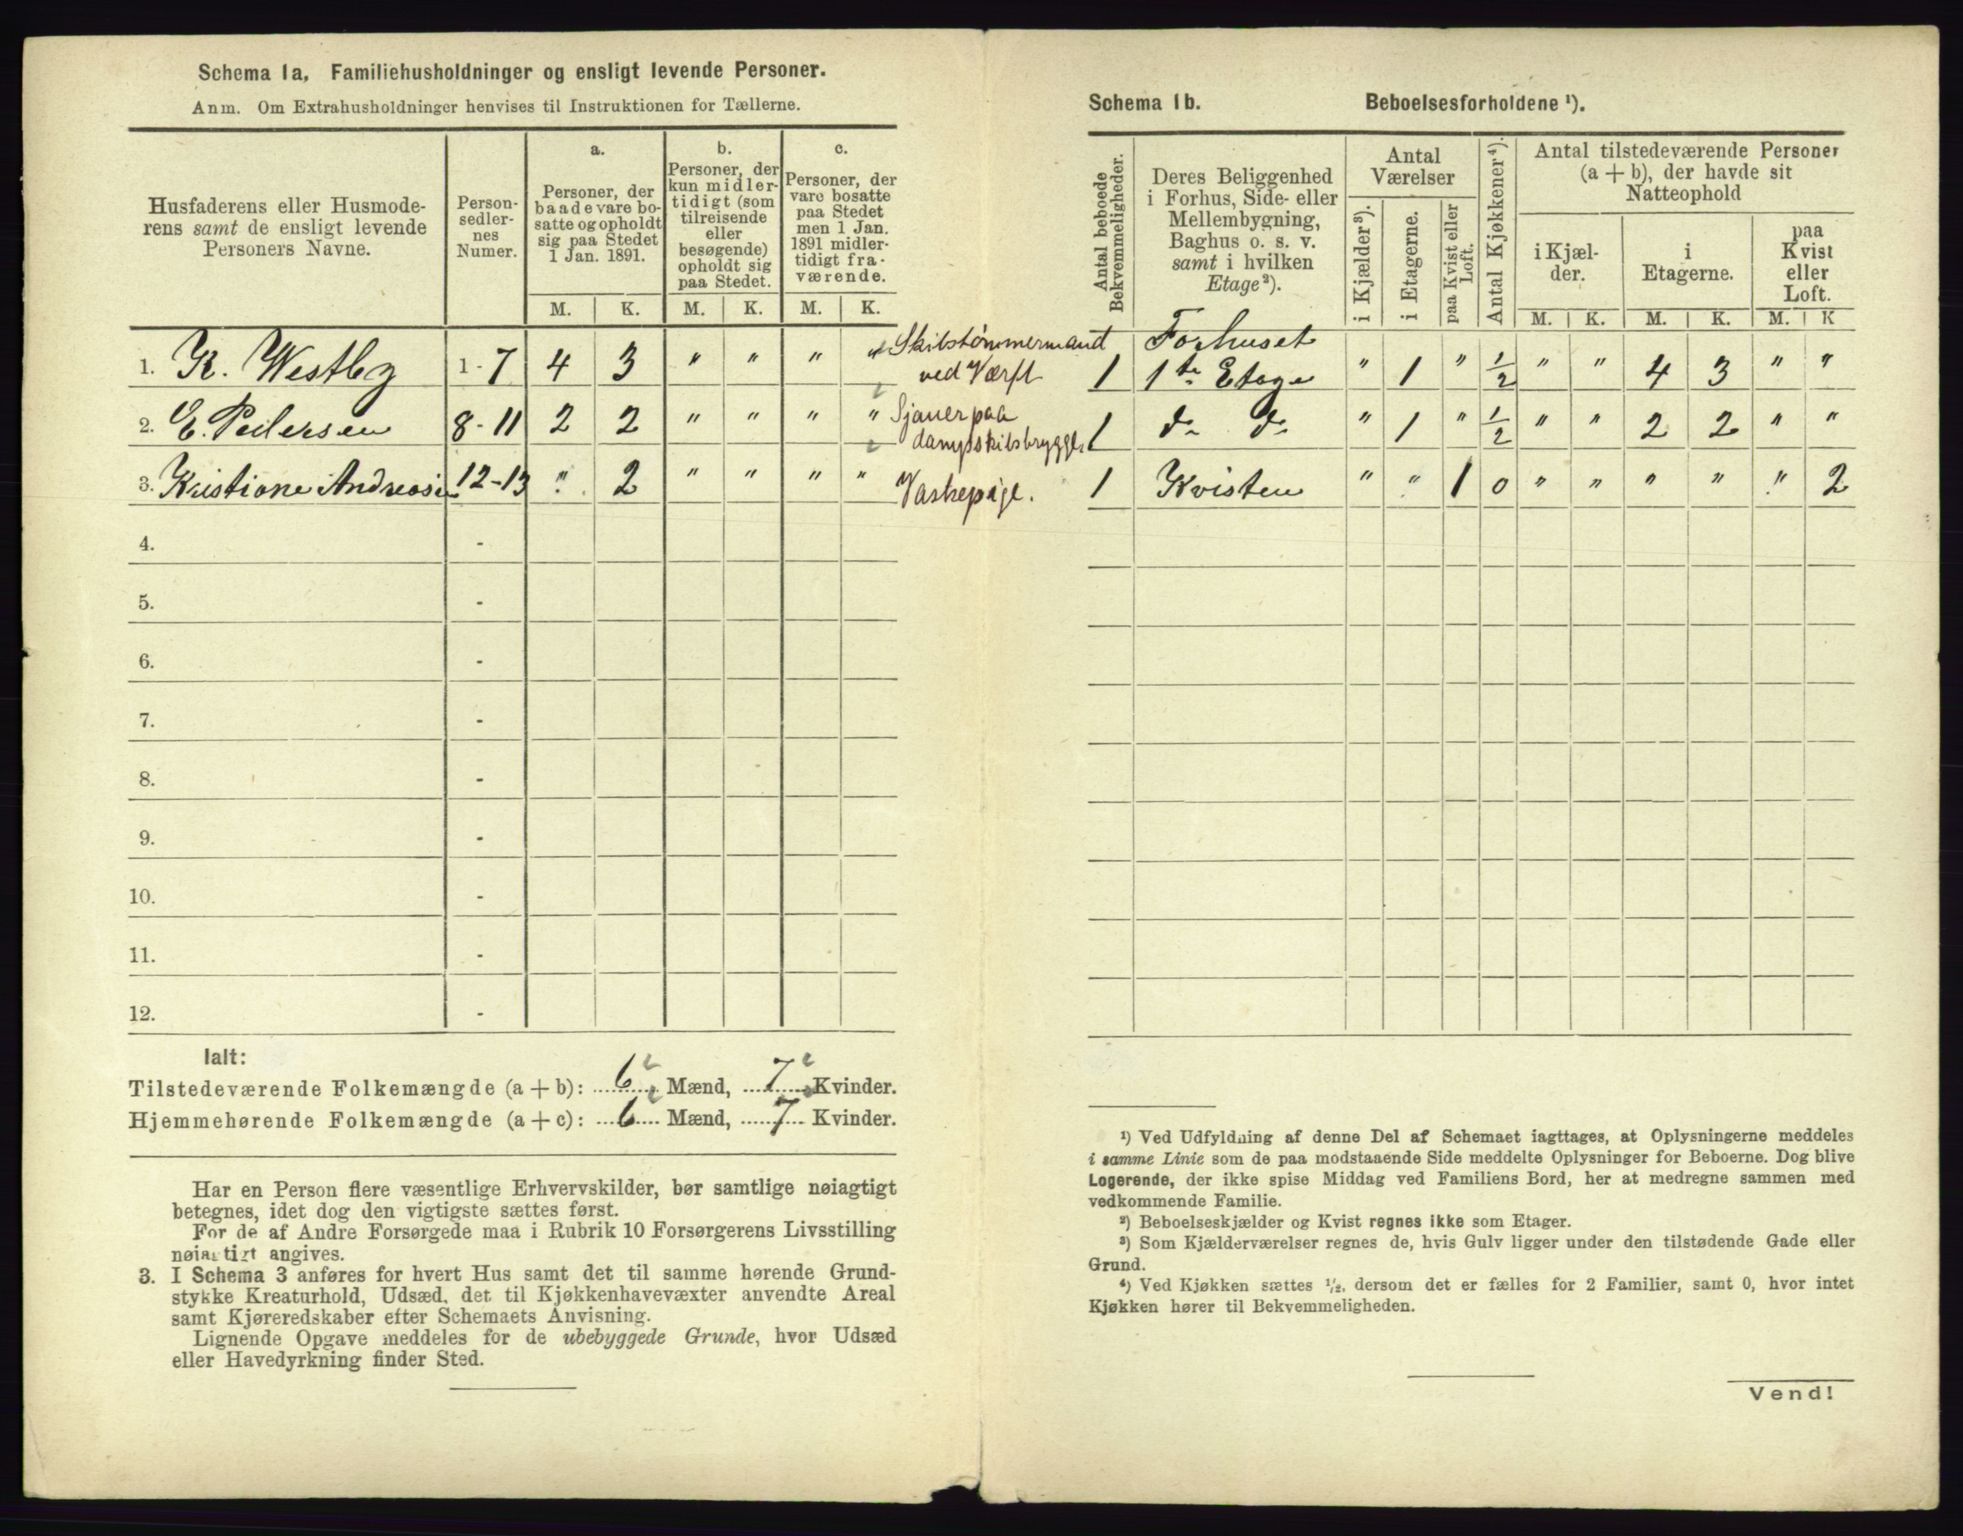 Schema 1a, Familiehusholdninger og ensligt levende Personer.
Anm. Om Extrahusholdninger henvises til Instruktionen for Tællerne.
Husfaderens eller Husmode-
rens samt de ensligt levende
Personers Navne.
Person-
sedler-
nes
Numer.
a.
Personer, der
baade vare bo-
satte og opholdt
sig paa Stedet
1 Jan. 1891.
b.
Personer, der
kun midler-
tidigt (som
tilreisende
eller
besøgende)
opholdt sig
paa Stedet.
c.
Personer, der
vare bosatte
paa Stedet
men 1 Jan.
1891 midler-
tidigt fra-
værende.
M. K. M. K. M. K.
1. K. Westby 1-7 4 3 " " " " Skibstømmermand
ved Værft
2. E. Pedersen 8-11 2 2 " " " " Sjauer paa
dampskibsbrygge
3. Kristiane Andreas 12-13 " 2 " " " " Vaskepige.
4. -
5. -
6. -
7. -
8. -
9. -
10. -
11. -
12. -
Ialt:
Tilstedeværende Folkemængde (a + b): 6 Mænd, 7 Kvinder.
Hjemmehørende Folkemængde (a + c): 6 Mænd, 7 Kvinder.
Har en Person flere væsentlige Erhvervskilder, bør samtlige nøiagtigt
betegnes, idet dog den vigtigste sættes først.
For de af Andre Forsørgede maa i Rubrik 10 Forsørgerens Livsstilling
nøiagtigt angives.
3. I Schema 3 anføres for hvert Hus samt det til samme hørende Grund-
stykke Kreaturhold, Udsæd, det til Kjøkkenhavevæxter anvendte Areal
samt Kjøreredskaber efter Schemaets Anvisning.
Lignende Opgave meddeles for de ubebyggede Grunde, hvor Udsæd
eller Havedyrkning finder Sted.
Schema 1b. Beboelsesforholdene ¹).
Antal beboede
Bekvemmeligheder.
Deres Beliggenhed
i Forhus, Side- eller
Mellembygning,
Baghus o. s. v.
samt i hvilken
Etage²).
Antal
Værelser
i Kjælder³).
i Etagerne.
paa Kvist eller
Loft.
Antal Kjøkkener⁴).
Antal tilstedeværende Personer
(a + b), der havde sit
Natteophold
i Kjæl-
der.
i
Etagerne.
paa
Kvist
eller
Loft.
M. K. M. K. M. K
Forhuset
1 1te Etage " 1 " 1/2 " " 4 3 " "
1 do do " 1 " 1/2 " " 2 2 " "
1 Kvisten " " 1 0 " " " " " 2
¹) Ved Udfyldning af denne Del af Schemaet iagttages, at Oplysningerne meddeles
i samme Linie som de paa modstaaende Side meddelte Oplysninger for Beboerne. Dog blive
Logerende, der ikke spise Middag ved Familiens Bord, her at medregne sammen med
vedkommende Familie.
²) Beboelseskjælder og Kvist regnes ikke som Etager.
³) Som Kjælderværelser regnes de, hvis Gulv ligger under den tilstødende Gade eller
Grund.
⁴) Ved Kjøkken sættes ½, dersom det er fælles for 2 Familier, samt 0, hvor intet
Kjøkken hører til Bekvemmeligheden.
Vend!